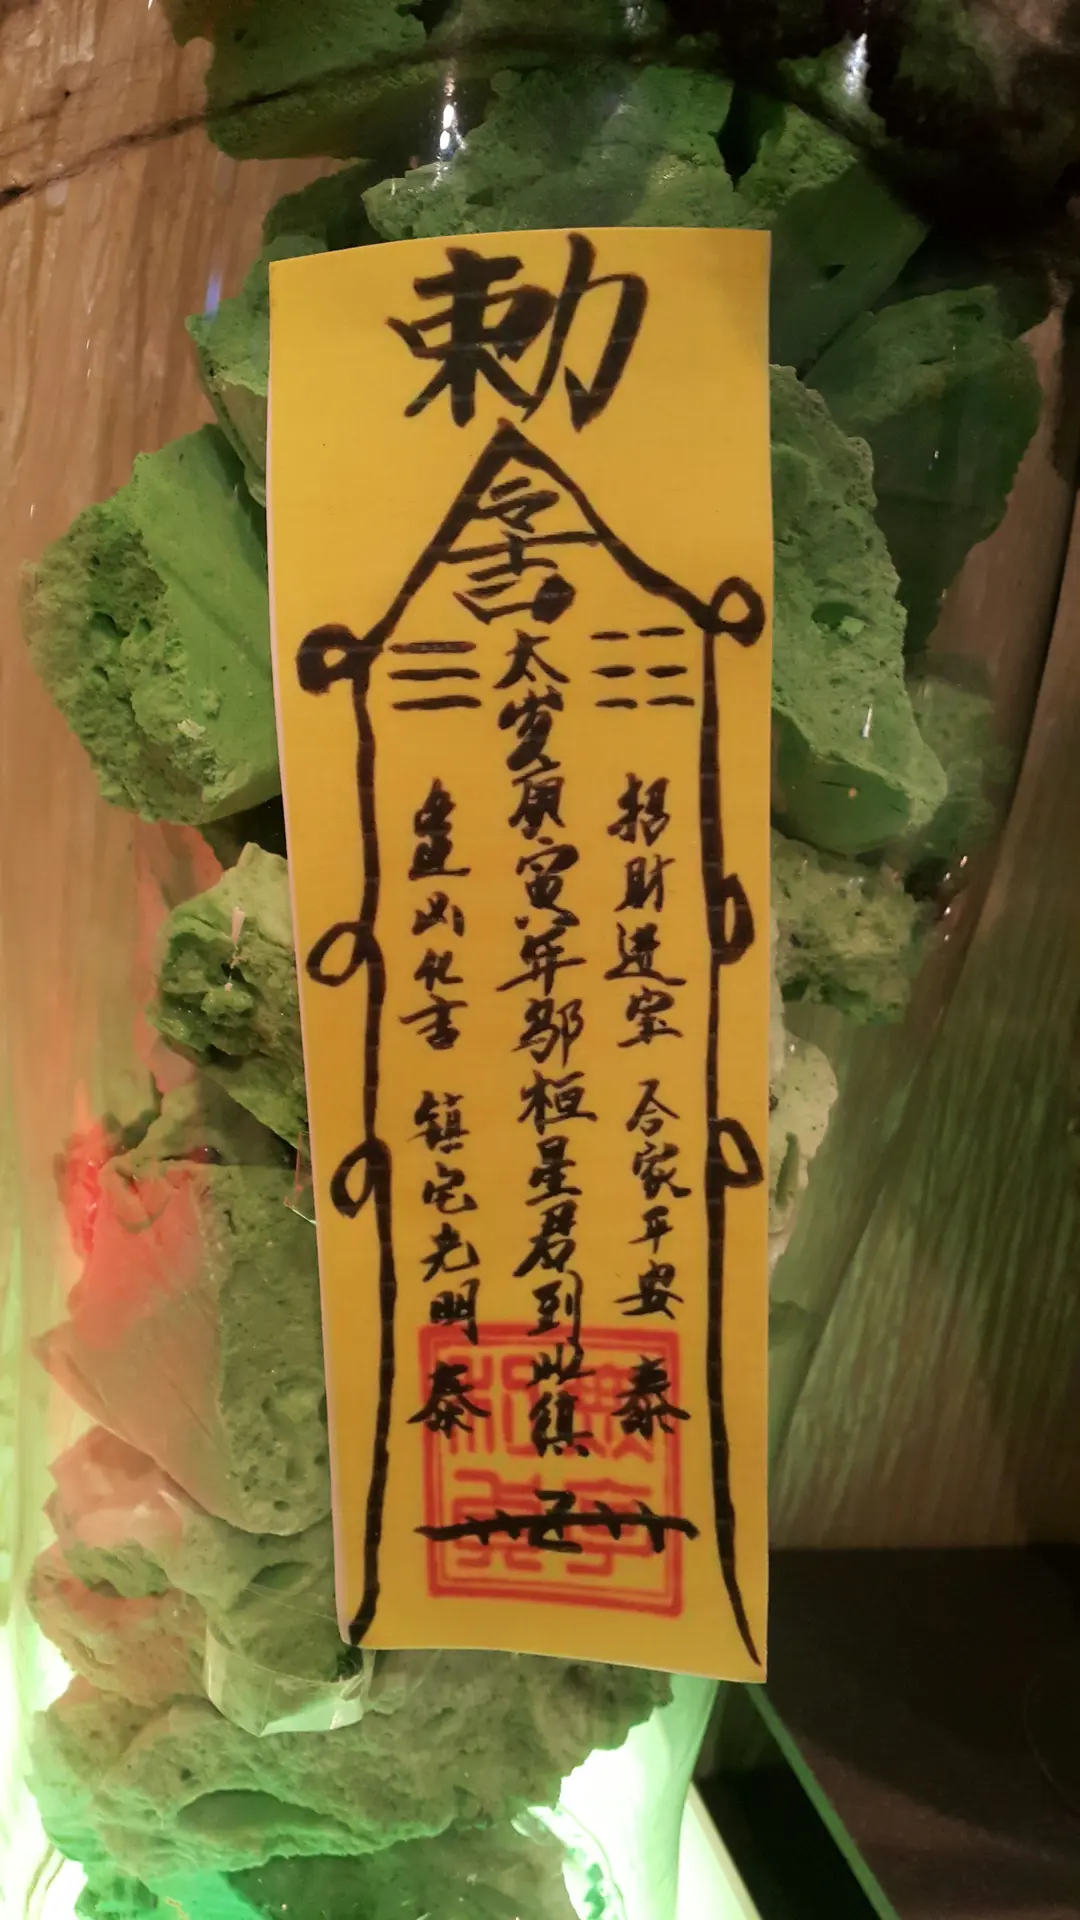 勅
招财进宝 合家平安 泰
太岁庚寅年邬桓星君到此镇
逢凶化吉 镇宅光明 泰